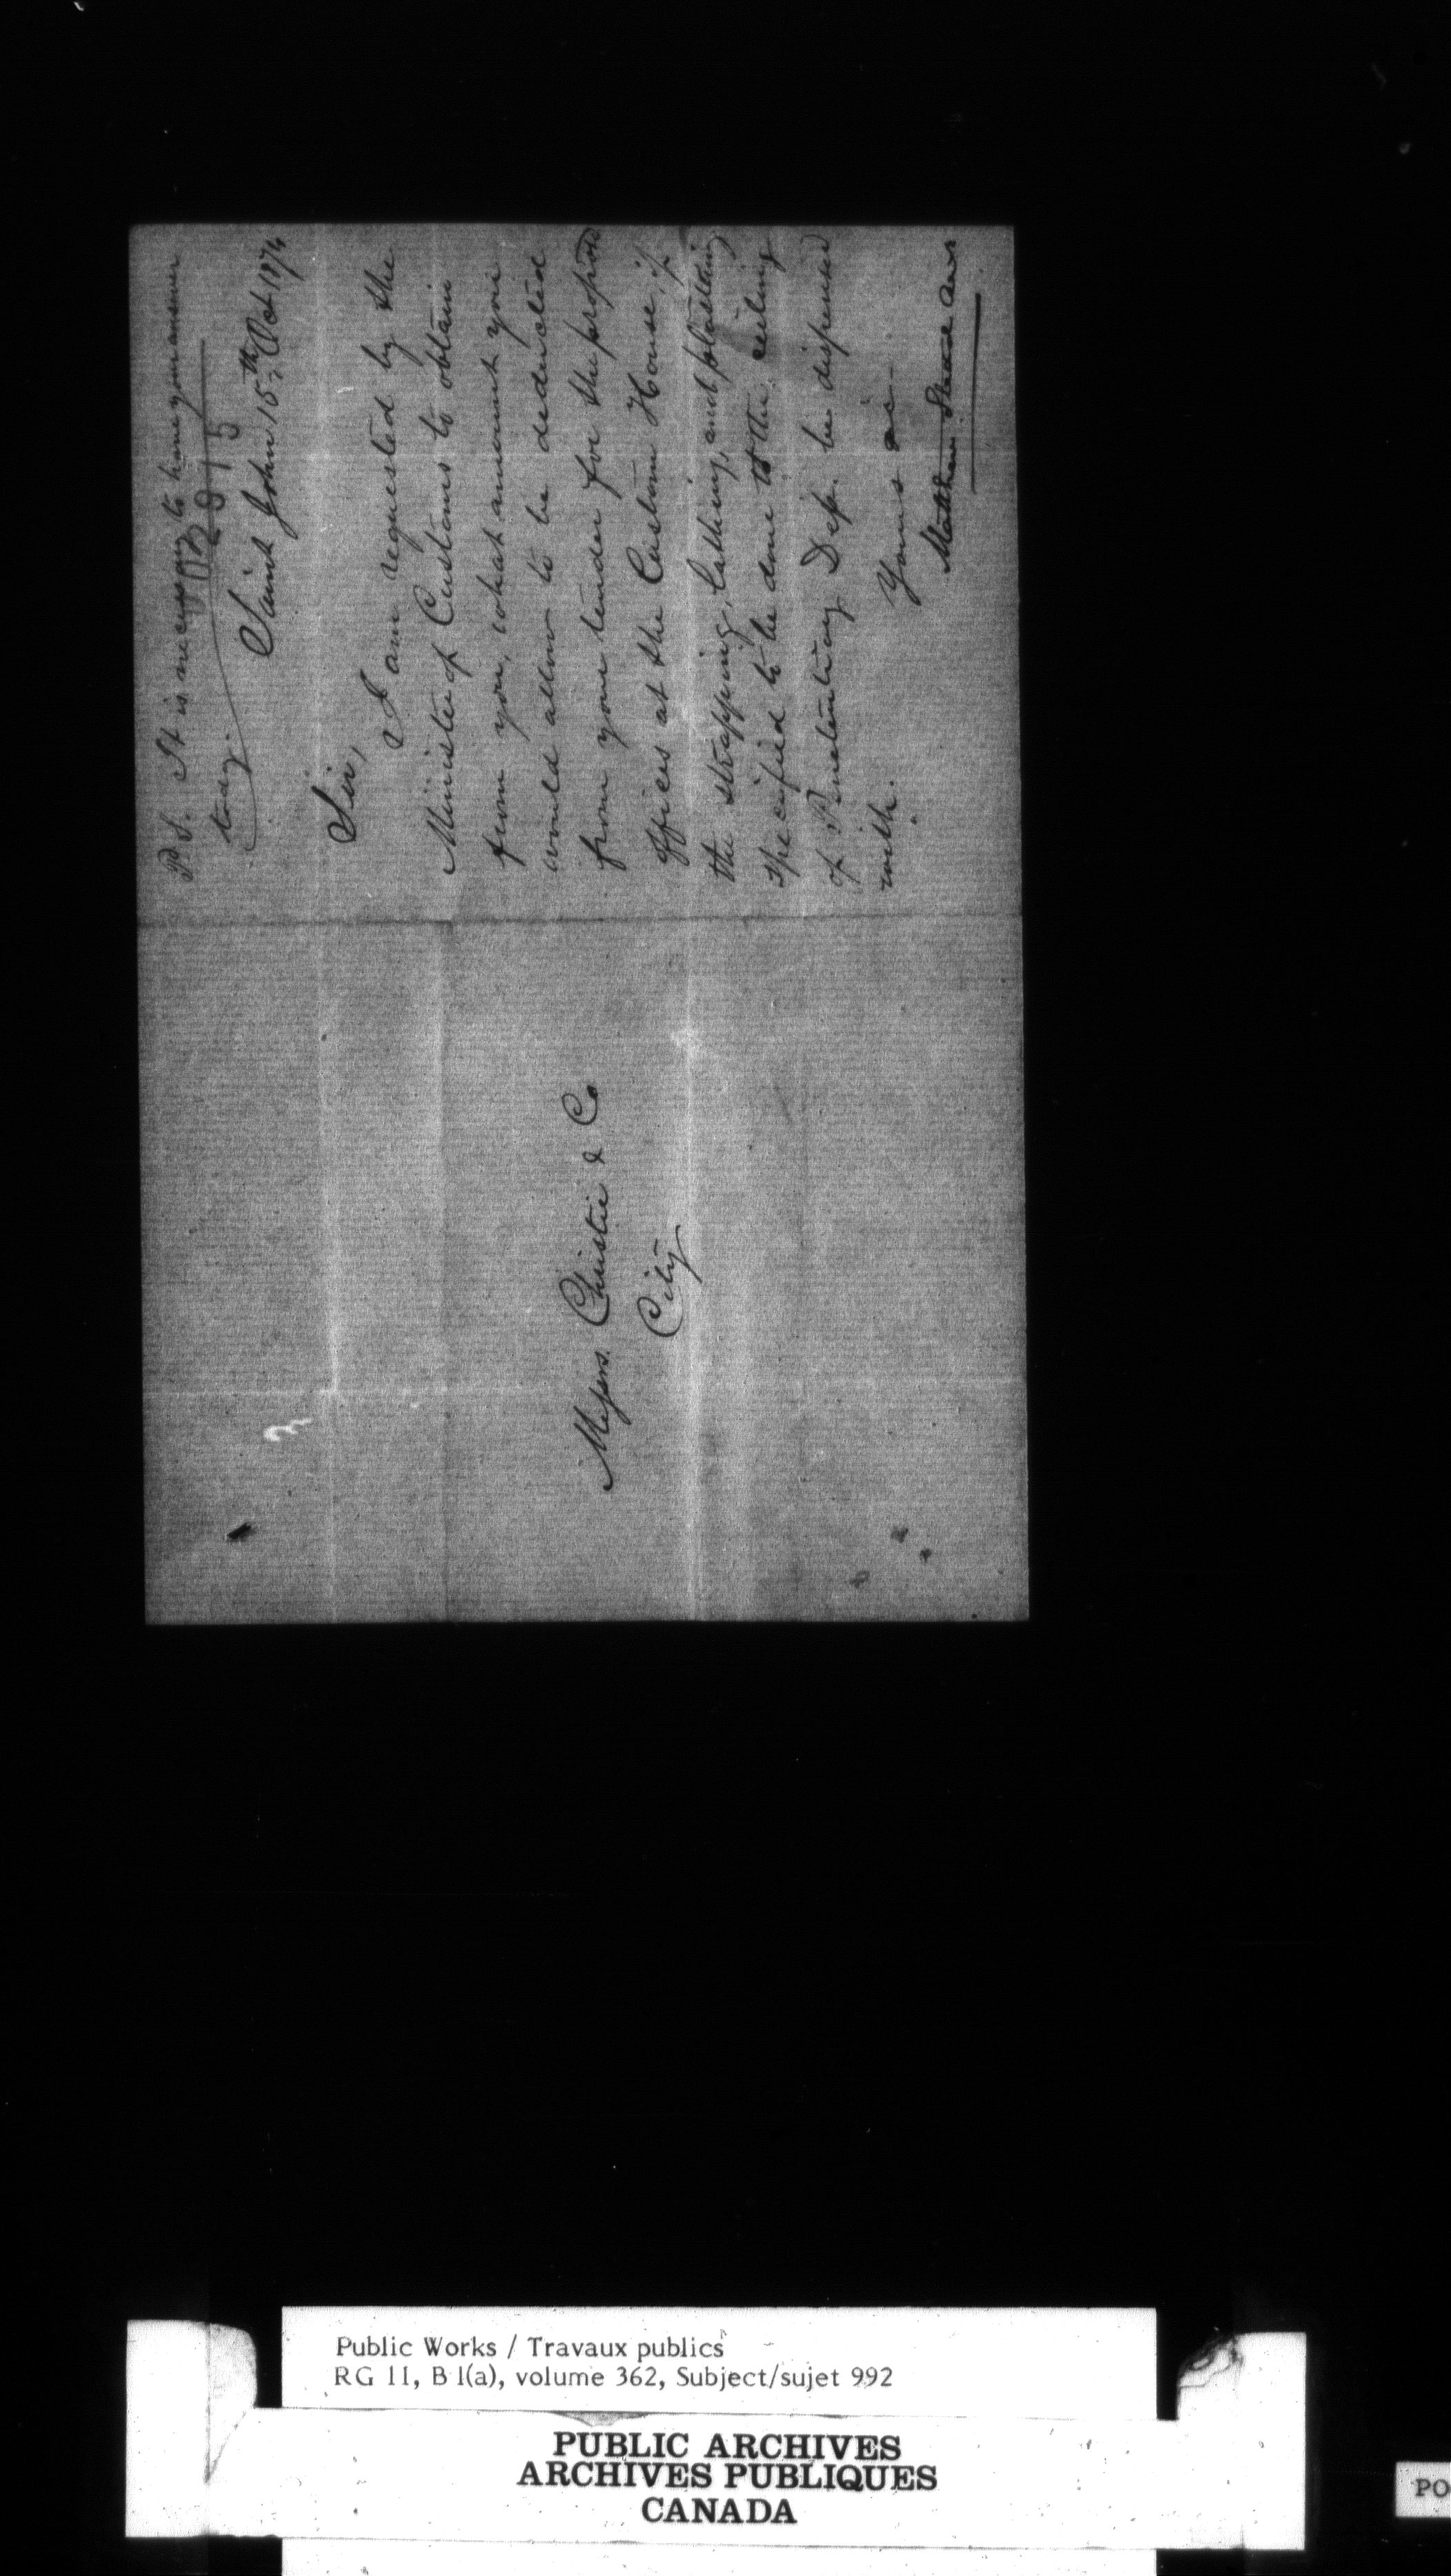 P.S. It is necessary to have your answer
today.
Saint John 15th Oct 1874
Sir,
I am requested by the
Minister of Customs to obtain
from you, what amount you
would allow to be deducted
from your tender for the proposed
offices at the Custom House, if
the strapping, lathing, and plastering
specified to be done to the ceiling
of Penetentiary Dep. be dispensed
with.
Yours &c
Matthew Stead Arct
Messrs. Christie & Co
City
Public Works / Travaux publics
RG 11, B 1(a), volume 362, Subject/sujet 992
PUBLIC ARCHIVES
ARCHIVES PUBLIQUES
CANADA
PO